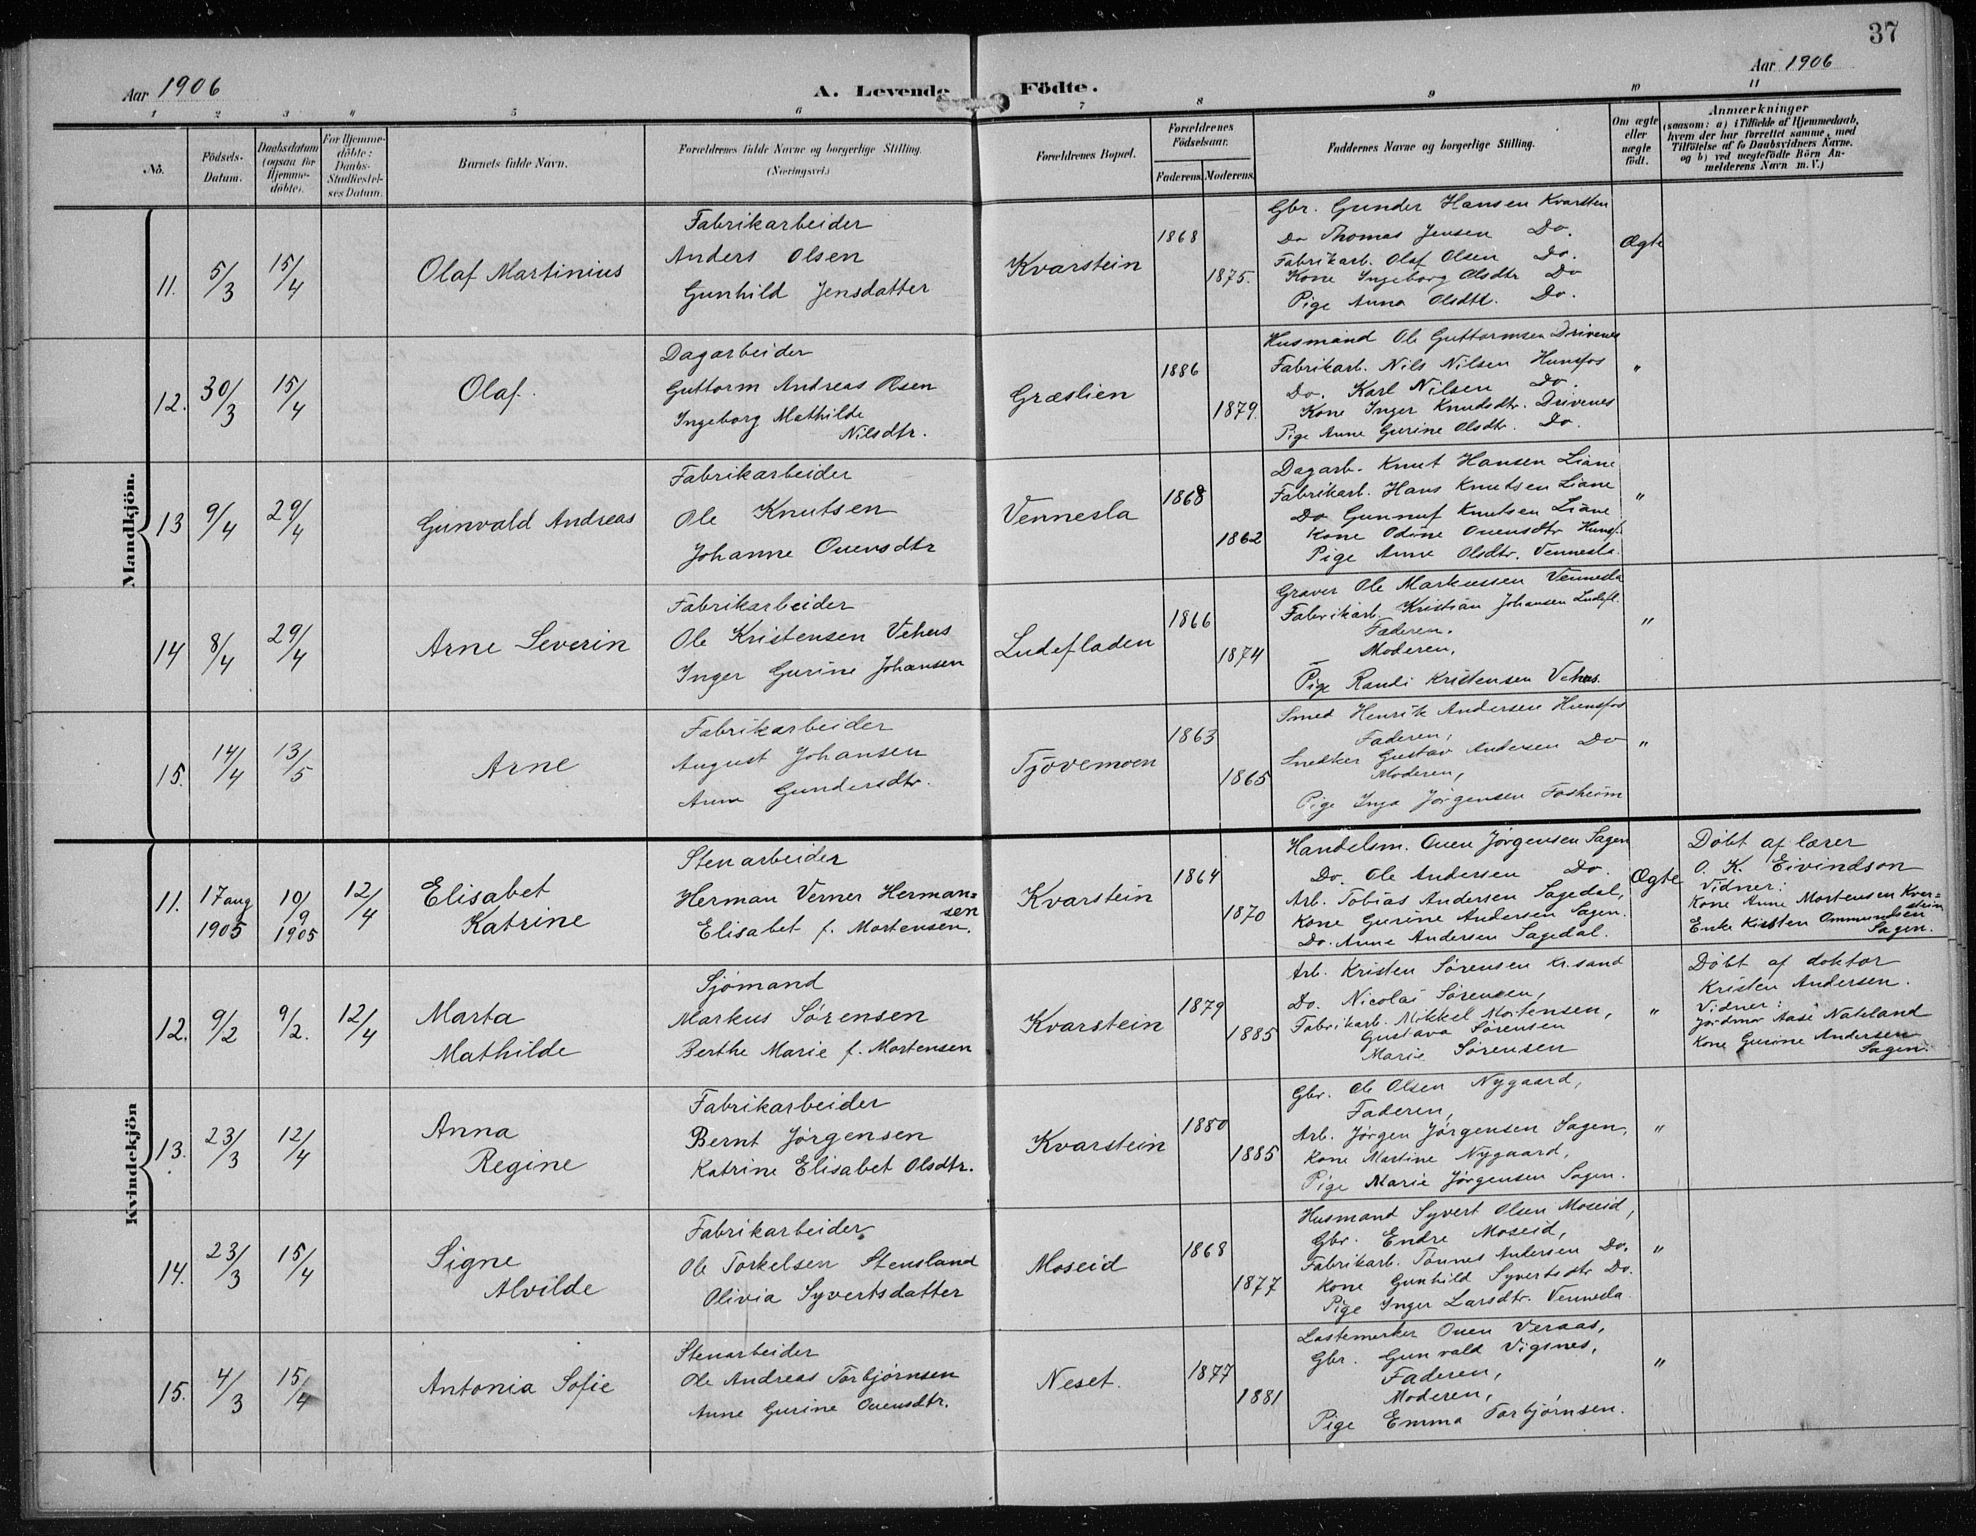 37
Aar 1906
A. Levende Födte.
Aar 1906
1 2 3 4 5 6 7 8 9 10 11
No.
Födsels-Datum.
Daabsdatum (ogsaa for Hjemmedöbte).
For Hjemmedöbte: Daabs-Stadfæstelses Datum.
Barnets fulde Navn.
Forældrenes fulde Navne og borgerlige Stilling.
(Næringsvei.)
Forældrenes Bopæl.
Forældrenes Födselsaar.
Faderens. Moderens.
Faddernes Navne og borgerlige Stilling.
Om ægte eller uægte födt.
Anmærkninger
(saasom: a) i Tilfælde af Hjemmedaab, hvem der har forrettet samme, med Tilföielse af to Daabsvidners Navne, og b) ved uægtefödte Börn Anmelderens Navn m. V.)
Mandkjön.
11. 5/3 15/4 Olaf Martinius
Fabrikarbeider
Anders Olsen
Gunhild Jensdatter
Kvarstein 1868 1875.
Gbr. Gunder Hansen Kvarsten
Do Thomas Jensen Do.
Fabrikarb. Olaf Olsen Do.
Kone Ingeborg Olsdtr Do
Pige Anna Olsdtr. Do.
Ægte
12. 30/3 15/4 Olaf.
Dagarbeider
Guttorm Andreas Olsen
Ingeborg Mathilde
Nilsdtr.
Græslien 1886 1879.
Husmand Ole Guttormsen Drivenes
Fabrikarb. Nils Nilsen Hunsfos
Do. Karl Nilsen Do.
Kone Inger Knudsdtr. Drivenes
Pige Anne Gurine Olsdtr. Do.
"
13 9/4 29/4 Gunvald Andreas
Fabrikarbeider
Ole Knutsen
Johanne Ouensdtr
Vennesla 1868 1862
Dagarb. Knut Hansen Liane
Fabrikarb. Hans Knutsen Liane
Do Gunnuf Knutsen Liane
Kone Odine Ouensdtr Hunsf.
Pige Anne Olsdtr. Vennesla.
"
14 8/4 29/4 Arne Severin
Fabrikarbeider
Ole Kristensen Vehus
Inger Gurine Johansen
Ludefladen 1866 1874
Graver Ole Markussen Vennesla
Fabrikarb. Kristian Johansen Ludefl.
Faderen.
Moderen,
Pige Randi Kristensen Vehus.
"
15. 14/4 13/5 Arne
Fabrikarbeider
August Johansen
Anna Gundersdtr.
Tjovemoen 1863 1865
Smed Henrik Andersen Hunsfos
Faderen,
Snekker Gustav Andersen Do
Moderen,
Pige Inga Jørgensen Fosheim
"
Kvindekjön
11. 17 aug 1905 10/9 1905 12/4 Elisabet
Katrine
Stenarbeider
Herman Verner Hermansen
Elisabet f. Mortensen.
Kvarstein 1864 1870
Handelsm. Ouen Jørgensen Sagen
Do. Ole Andersen Do.
Arb. Tobias Andersen Sagedal,
Kone Gurine Andersen Sagen.
Do. Anne Andersen Sagedal.
Ægte
Døbt af lærer
O. K. Eivindson
Vidner:
Kone Anne Mortensen Kvarstein
Enke Kirsten Ommundsen
Sagen.
12. 9/2 9/2. 12/4 Marta
Mathilde
Sjømand
Markus Sørensen
Berthe Marie f. Mortensen
Kvarstein 1879 1885
Arb. Kristen Sørensen Kr.sand
Do. Nicolai Sørensen,
Fabrikarb. Mikkel Mortensen,
Gustava Sørensen
Marie Sørensen
"
Døbt af doktor
Kristen Andersen.
Vidner:
Jordmor Aase Nateland
Kone Gurine Andersen
Sagen.
13. 23/3 12/4 Anna
Regine
Fabrikarbeider
Bernt Jørgensen
Katrine Elisabet Olsdtr.
Kvarstein 1880 1885
Gbr. Ole Olsen Nygaard,
Faderen,
Arb. Jørgen Jørgensen Sagen,
Kone Martine Nygaard,
Pige Marie Jørgensen Sagen.
"
14. 23/3 15/4 Signe
Alvilde
Fabrikarbeider
Ole Torkelsen Stensland
Olivia Syvertsdatter
Moseid 1868 1877
Husmand Syvert Olsen Moseid,
Gbr. Endre Moseid,
Fabrikarb. Tønnes Andersen Do.
Kone Gunhild Syvertsdtr Do.
Pige Inger Larsdtr. Vennesla.
"
15. 4/3 15/4 Antonia Sofie
Stenarbeider
Ole Andreas Torbjørnsen
Anne Gurine Ouensdtr.
Neset. 1877 1881
Lastemerker Ouen Veraas,
Gbr. Gunvald Vigsnes,
Faderen,
Moderen,
Pige Emma Torbjørnsen.
"